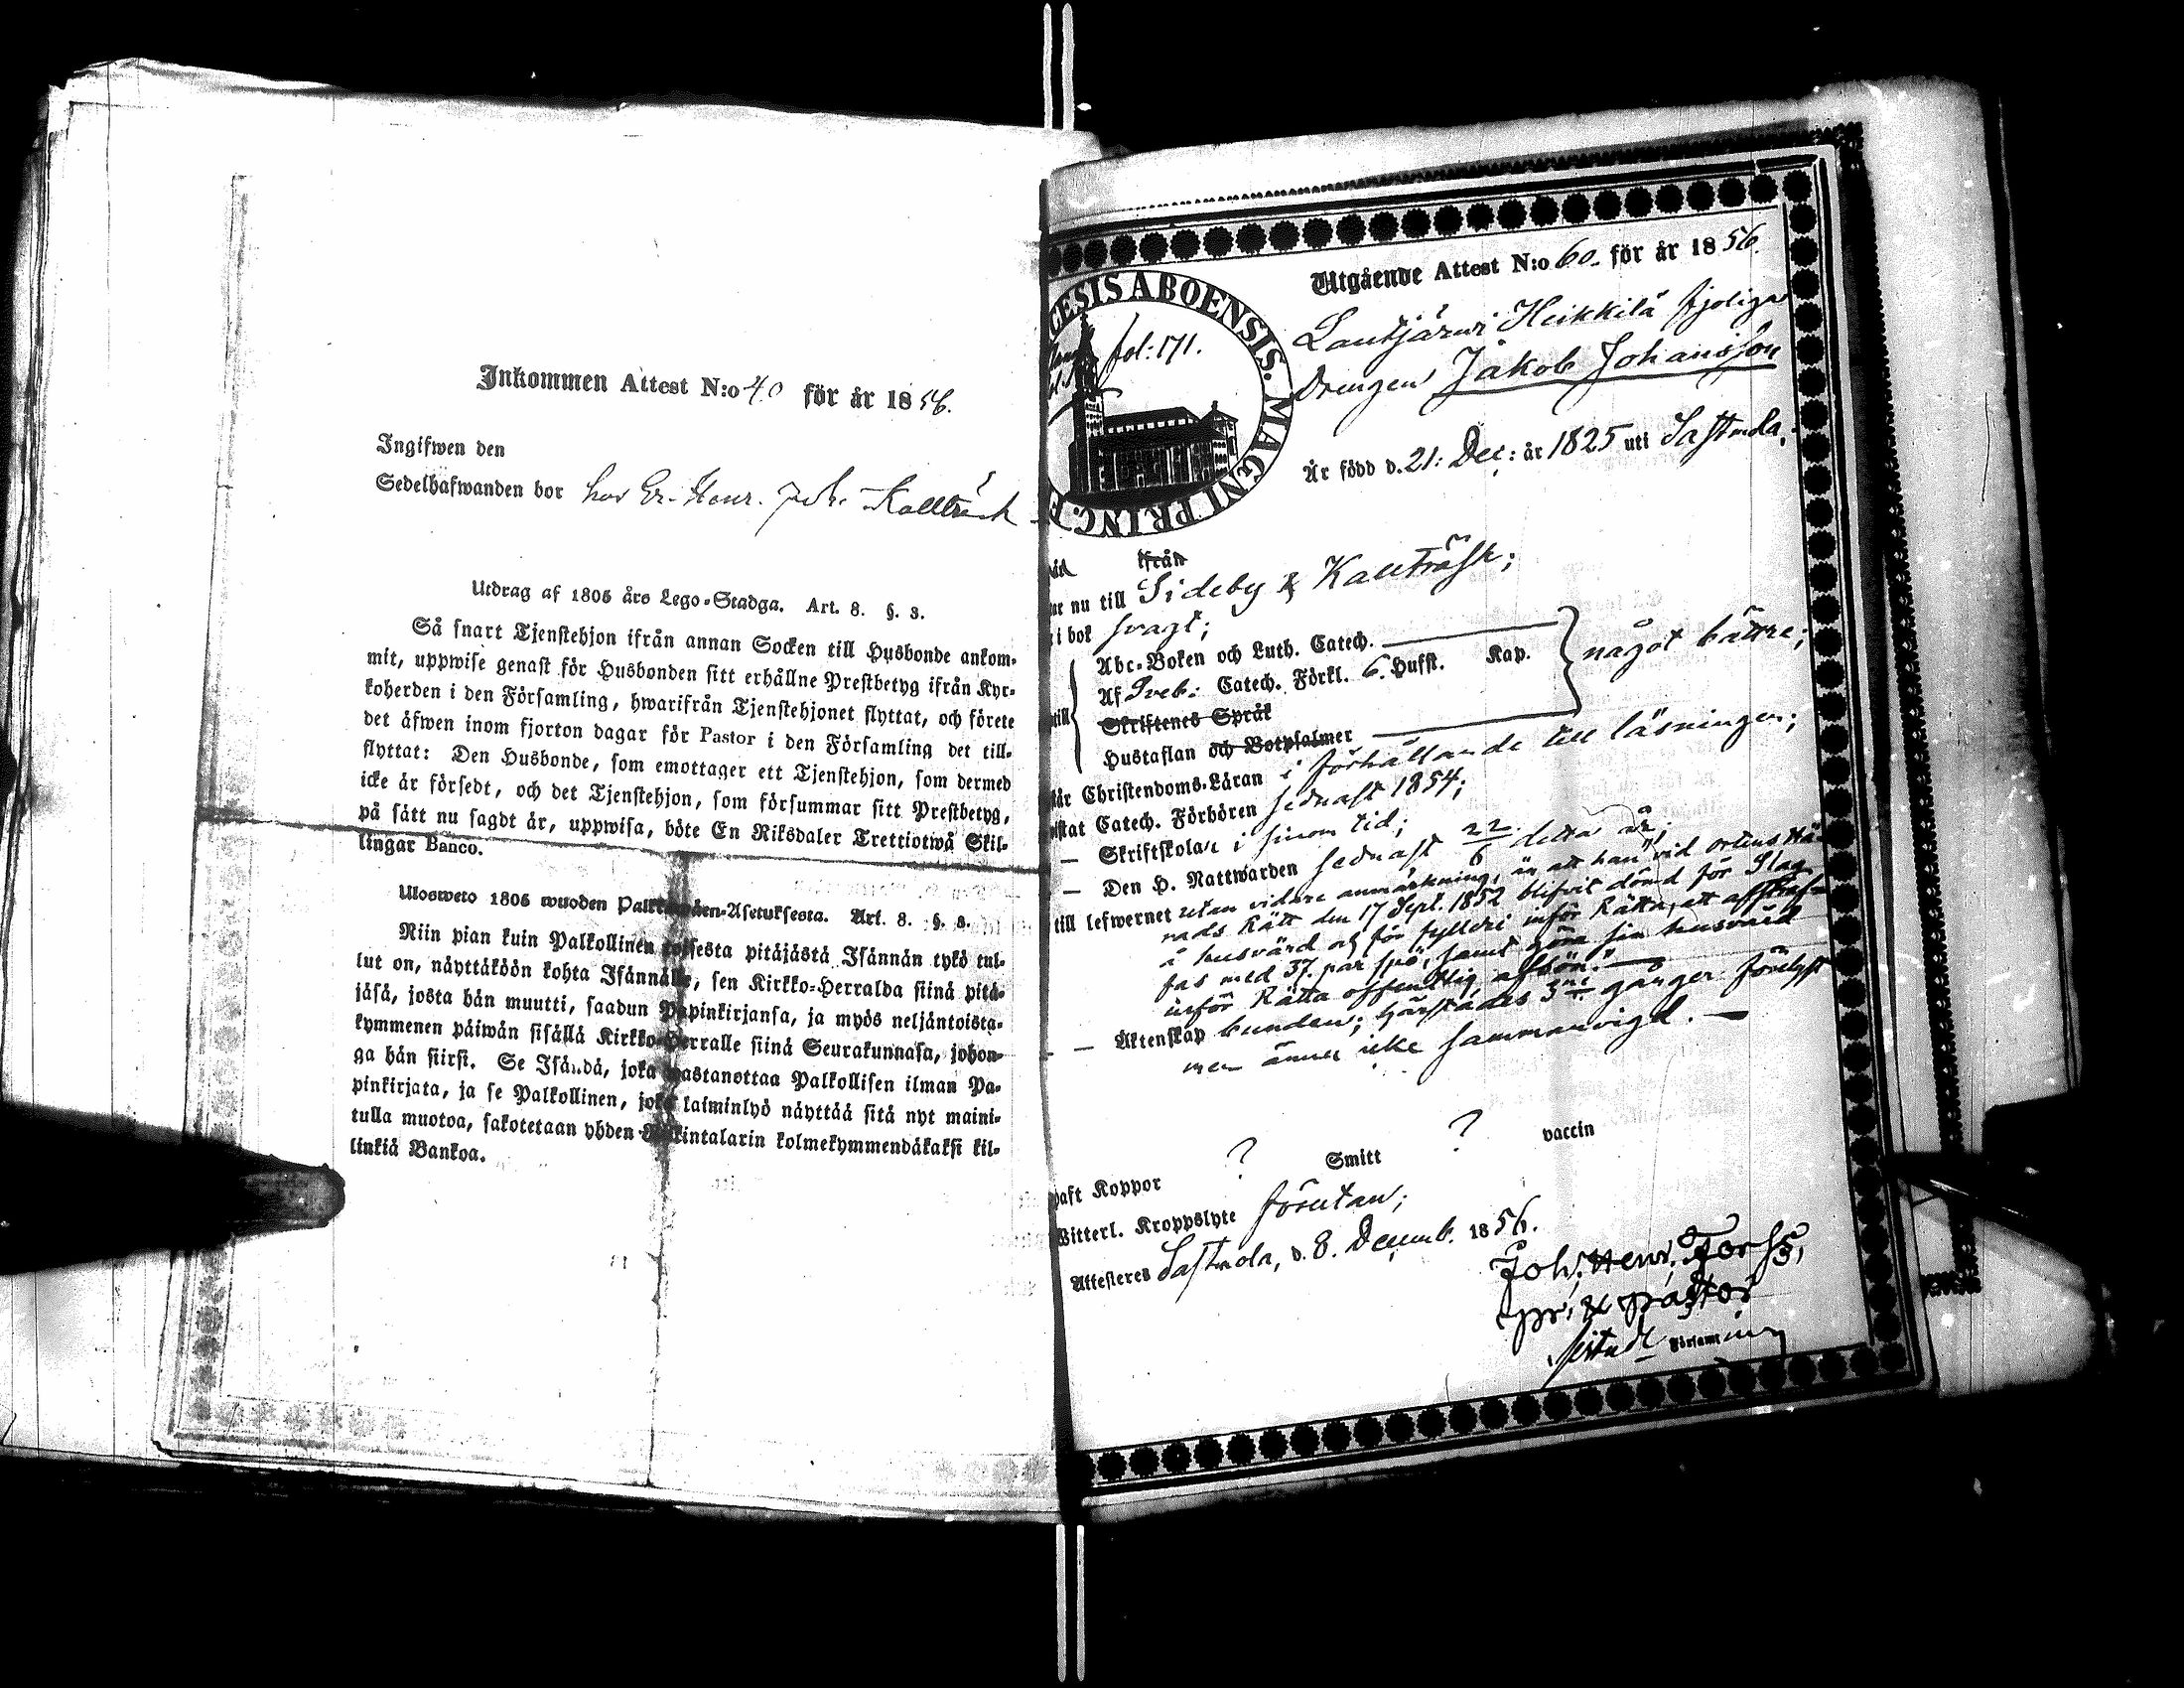 Inkommen Attest N:o 40 för år 1856.
Ingifwen den
Sedelhafwanden bor hos Hr. Henr. Kallträsk
Utdrag af 1805 års Lego-Stadga. Art. 8. §. 3.
Så snart Tjenstehjon ifrån annan Socken till Husbonde ankom-
mit, uppwise genast för Husbonden sitt erhållne Prestbetyg ifrån Kyr-
koherden i den Församling, hwarifrån Tjenstehjonet flyttat, och förete
det äfwen inom fjorton dagar för Pastor i den Församling det till-
flyttat: Den Husbonde, som emottager ett Tjenstehjon, som dermed
icke är försedt, och det Tjenstehjon, som försummar sitt Prestbetyg,
på sätt nu sagdt är, uppwisa, böte En Riksdaler Trettiotwå Skil-
lingar Banco.
Ulosweto 1805 wuoden Palkkawäen-Asetuksesta. Art. 8. §. 3.
Niin pian kuin Palkollinen toisesta pitäjästä Isännän tykö tul-
lut on, näyttäköön kohta Isännälle, sen Kirkko-Herralda siinä pitä-
jäsä, josta hän muutti, saadun Papinkirjansa, ja myös neljäntoista-
kymmenen päiwän sisällä Kirkko-Herralle siinä Seurakunnasa, johon-
ga hän siirsi. Se Isändä, joka wastanottaa Palkollisen ilman Pa-
pinkirjata, ja se Palkollinen, joka laiminlyö näyttää sitä nyt maini-
tulla muotoa, sakotetaan yhden Riikintalarin kolmekymmendäkaksi kil-
linkiä Bankoa.
CESIS ABOENSIS. MAGNI PRINC. F
fol: 171.
Utgående Attest N:o 60. för år 1856.
Lautjärwi Heikkilä fjolige
Drengen Jakob Johansson
Är född d. 21: Dec: år 1825 uti Sastmola.
ifrån
nu till Sideby & Kallträsk;
i bok svagt;
Abc-Boken och Luth. Catech.
Af Sveb: Catech. Förkl. 6. Hufst. Kap. något bättre;
Skriftenes Språk
Hustaflan och Botpsalmer
Christendoms-Läran i förhållande till läsningen;
Catech. Förhören sednast 1854;
— Skriftskolan i sinom tid;
— Den H. Nattwarden sednast 22/6 detta år;
till lefwernet utan vidare anmärkning, än att han vid ortens Hä-
rads Rätt den 17 Sept. 1852 blifvit dömd för Slag
å husvärd och för fylleri inför Rätta, att afstraf-
fas med 37. par spö, samt göra sin husvärd
inför Rätta offentlig afbön.
— Äktenskap bunden; härstädes 3ne gånger förelyst
men ännu icke sammanvigd. —
haft Koppor ? Smitt ? vaccin
Witterl. Kroppslyte förutan;
Attesteres Sastmola, d. 8. Decemb. 1856.
Joh. Henr. Forss,
pr. & pastor
Församling